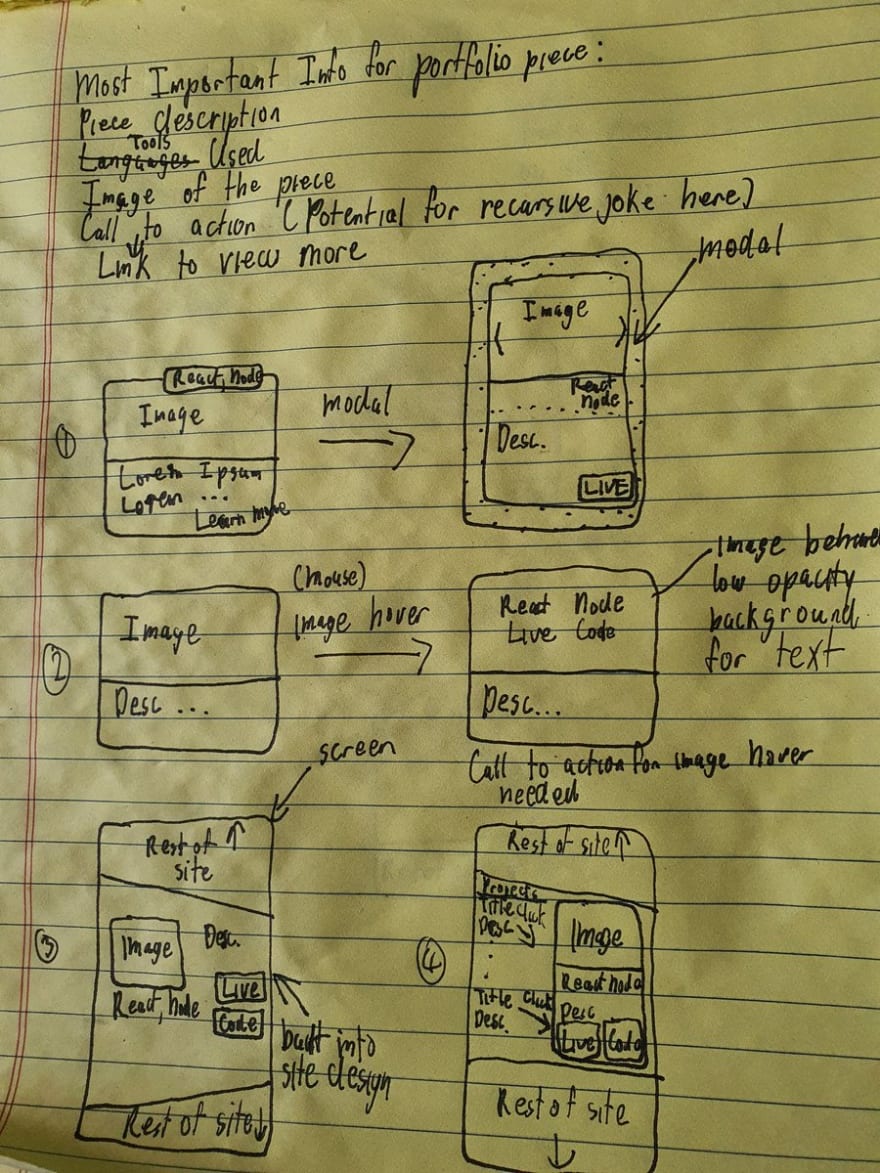 Most Important Info for portfolio piece:
Piece description
Tools
Languages Used
Image of the piece
Call to action (Potential for recursive joke here)
Link to view more
modal
①
React, Node
Image
Lorem Ipsum
Lorem ...
Learn more
modal
Image
React
Node
Desc.
LIVE
②
Image
Desc ...
(mouse)
Image hover
React Node
Live Code
Desc...
Image behind
low opacity
background
for text
Call to action for image hover
needed
③
screen
Rest of ↑
site
Image
Desc.
React, Node
Live
Code
built into
site design
Rest of site↓
④
Rest of site↑
Projects
Title Click
Desc
Title Click
Desc.
Image
React Node
Desc
Live Code
Rest of site
↓